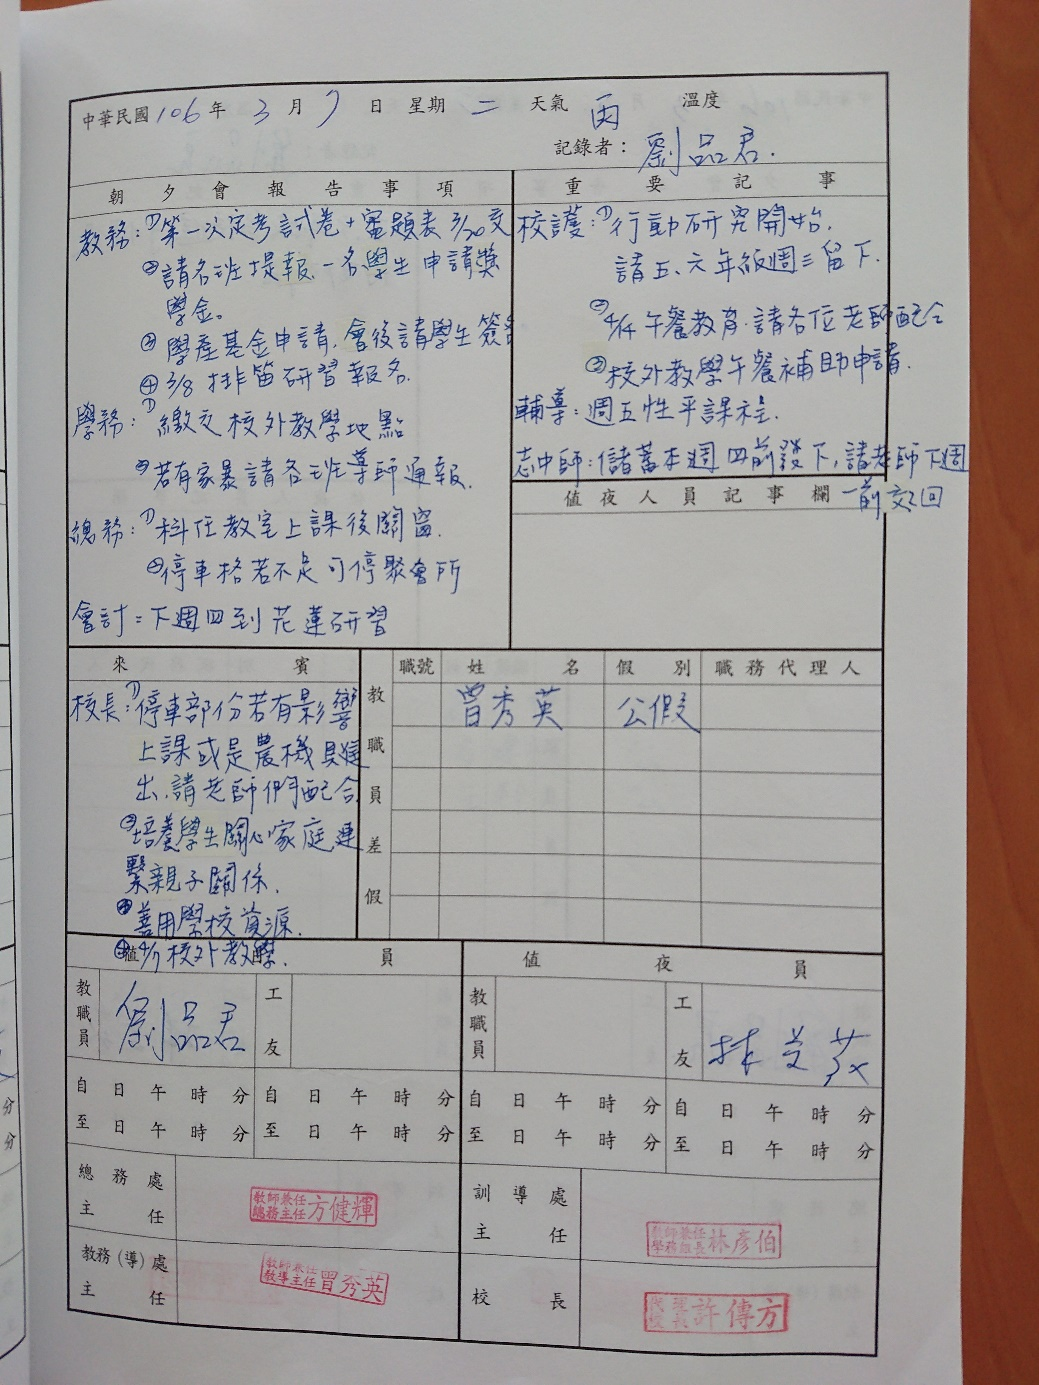 中華民國106年 3月 7日 星期二 天氣 雨 溫度
記錄者：劉品君.
朝夕會報告事項
教務：①第一次定考試卷+審題表 3/20交
②請各班提報一名學生申請獎
學金。
③學產基金申請,會後請學生簽名
④3/8 排笛研習報名.
學務：①繳交校外教學地點
②若有家暴請各班導師通報.
總務：①科任教室上課後關窗.
②停車格若不足可停聚會所
會計：下週四到花蓮研習
重要記事
校護：①行動研究開始.
請五、六年級週三留下.
②4/14 午餐教育.請各位老師配合
③校外教學午餐補助申請.
輔導：週五性平課程.
志中師：儲蓄本週四前發下,請老師下週
一前交回
值夜人員記事欄
來賓
校長：①停車部份若有影響
上課或是農機具進
出,請老師們配合
②培養學生關心家庭連
繫親子關係.
③善用學校資源.
④4/7校外教學.
教職員差假
職號 姓名 假別 職務代理人
曾秀英 公假
值 員
教職員 劉品君 工友
值夜員
教職員 工友
自 日 午 時 分 自 日 午 時 分 自 日 午 時 分 自 日 午 時 分
至 日 午 時 分 至 日 午 時 分 至 日 午 時 分 至 日 午 時 分
總務處主任
教師兼任
總務主任 方健輝
訓導處主任
教師兼任
學務組長 林彥伯
教務(導)處主任
教師兼任
教導主任 曾秀英
校長
代理
校長 許傳方